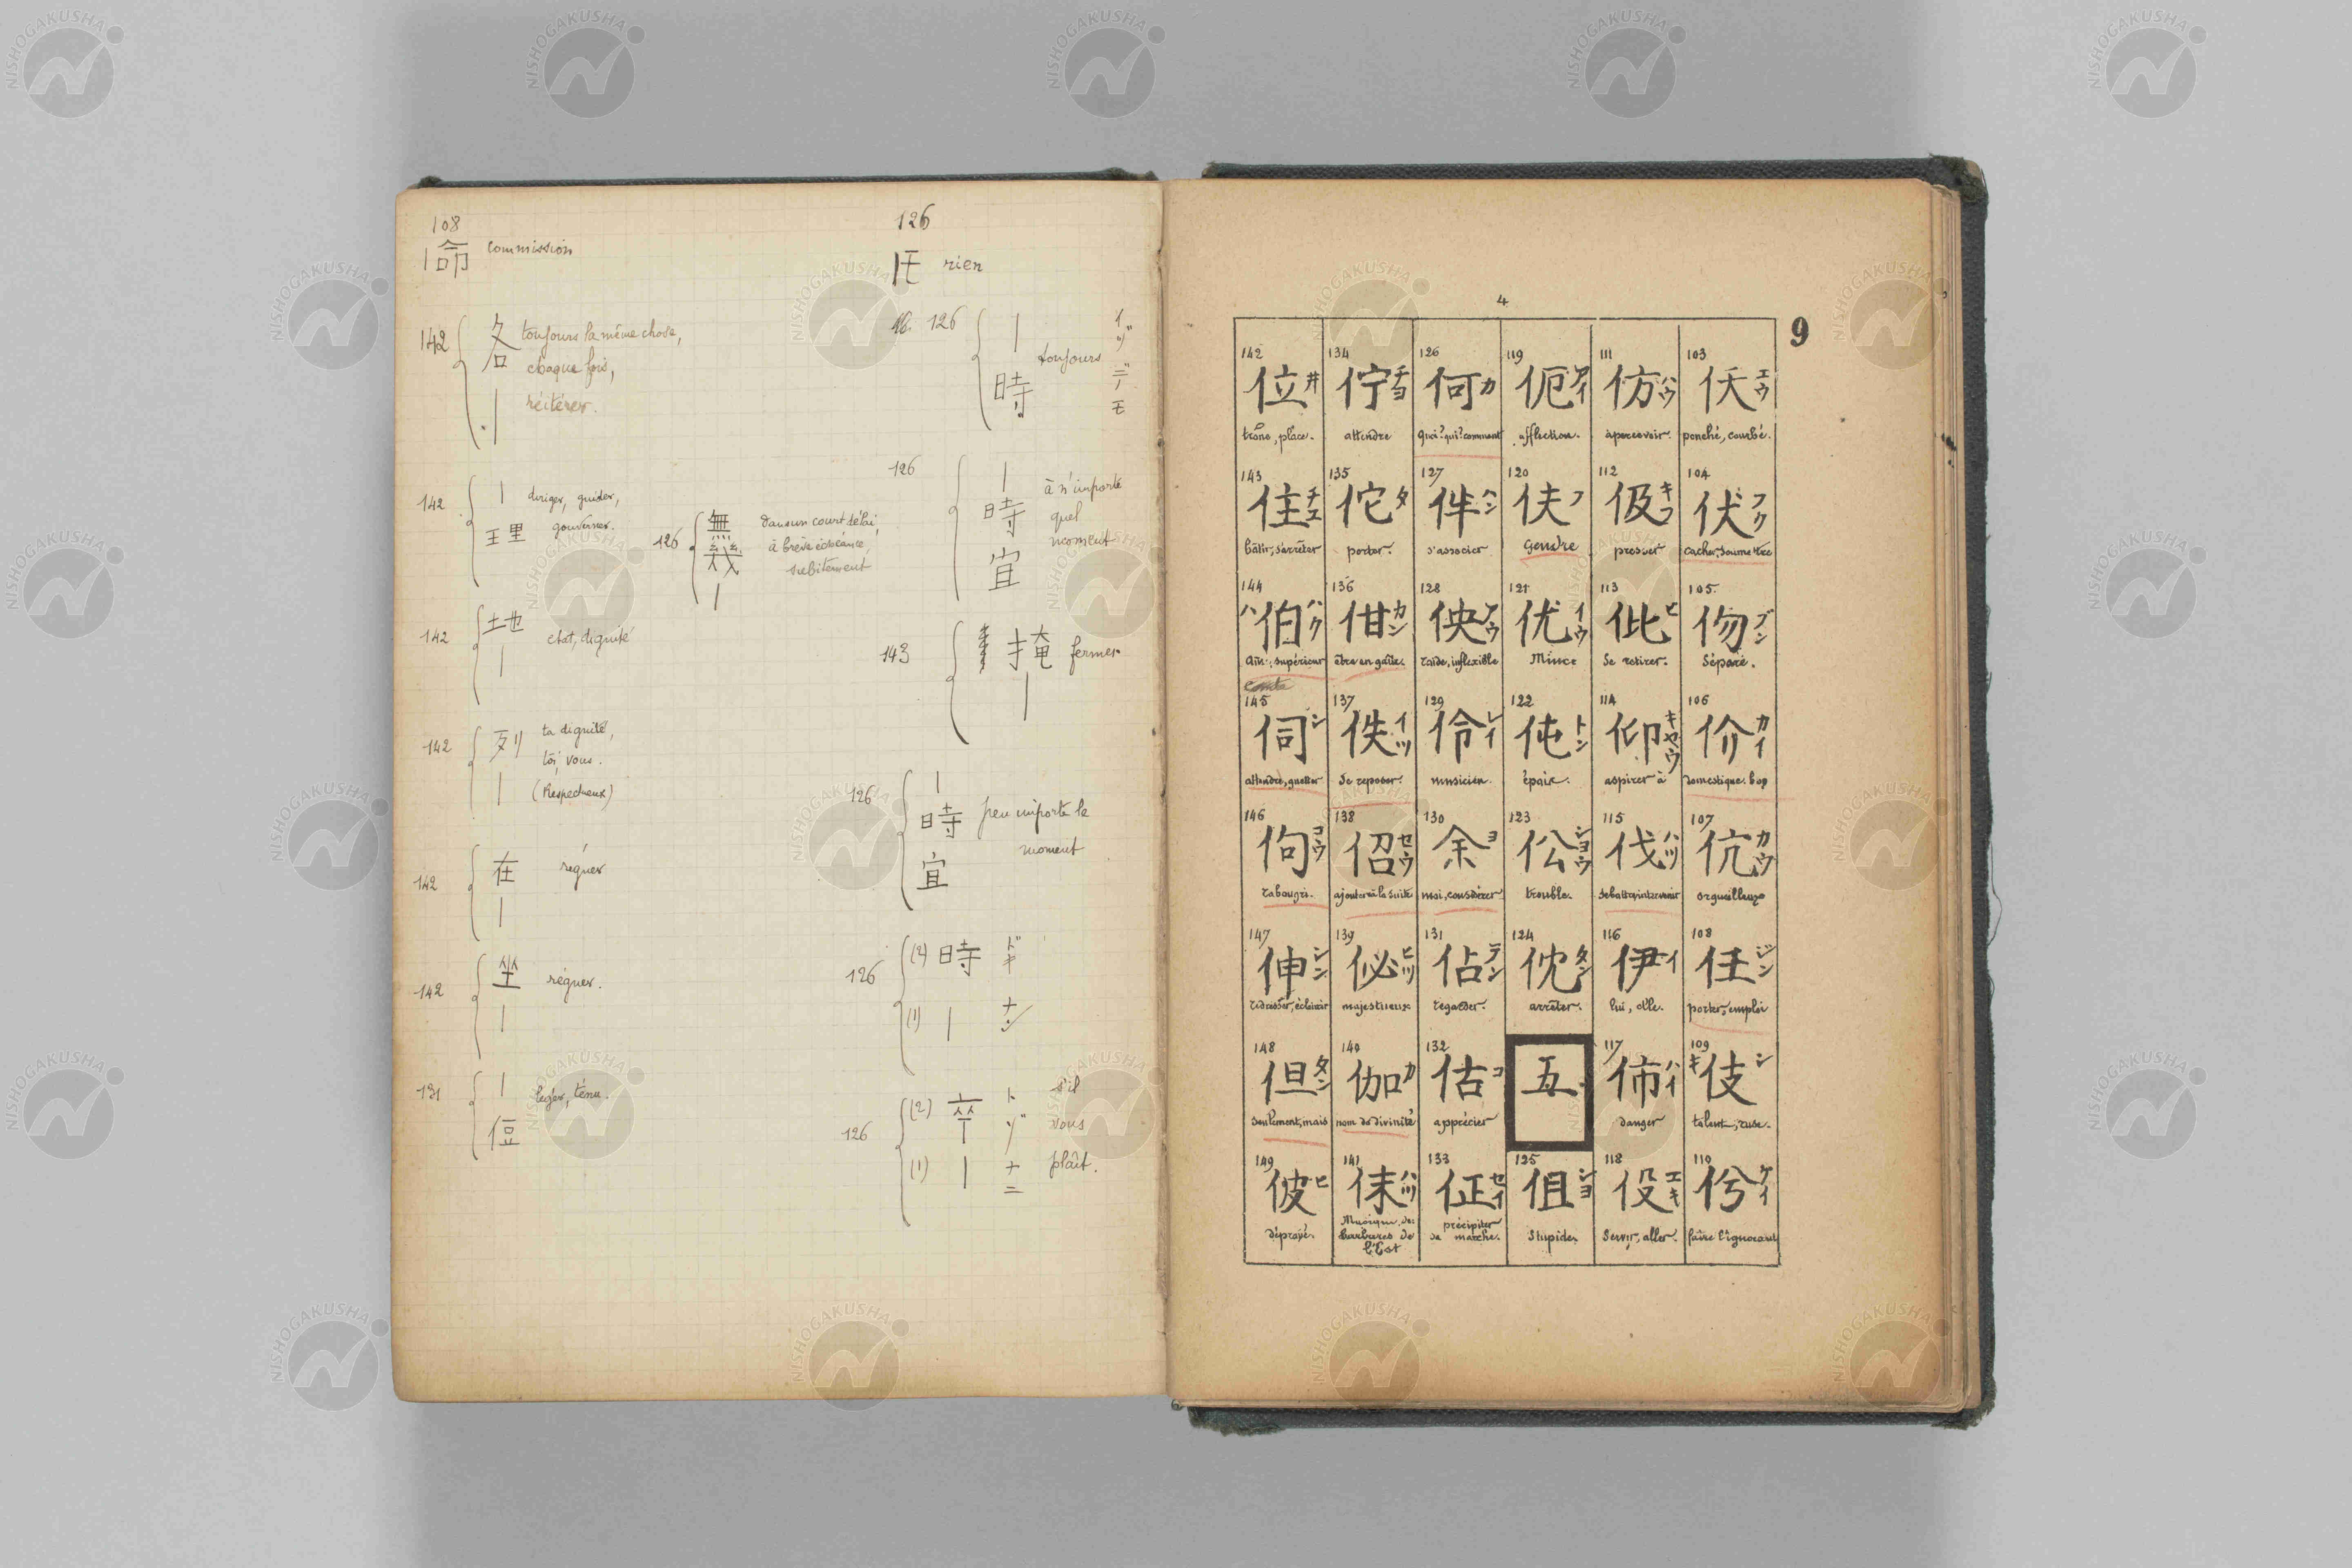 108
命 commission
142 各 toujours la même chose,
chaque fois,
réitérer.
142 | diriger, guider,
理 gouverner.
142 地 état, dignité
|
142 列 ta dignité,
toi, vous.
| (Respectueux)
142 在 régner
|
142 坐 régner.
|
131 | léger, ténu.
126 無 dans un court délai,
幾 à brève échéance,
| subitement
126
任 rien
126 | toujours
時
イツ
デモ
126 | à n'importe
時 quel
宜 moment
143 掩 fermer
|
126 |
時 peu importe le
宜 moment
126 (2) 時 ドキ
(1) | ナ
126 (2) 卒 ト s'il
ツ vous
(1) | ナニ plaît.
4
9
103 仸 エウ
penché, courbé.
104 伏 フク
cacher, soumettre
105. 伆 ブン
Séparé.
106 价 カイ
domestique. bon
107 伉 カウ
orgueilleux
108 任 ジン
porter, emploi
109 伎 シ キ
talent, ruse.
110 伿 ケイ
faire l'ignorant
111 仿 ハウ
apercevoir.
112 伋 キフ
presser
113 仳 ヒ
Se retirer.
114 仰 キヤウ
aspirer à
115 伐 ハツ
se battre, intervenir
116 伊 イ
lui, elle.
117 伂 ハイ
danger
118 伇 エキ
Servir, aller.
119 伌 アイ
affliction.
120 伕 フ
Gendre
121 优 イウ
Mince
122 伅 トン
épais.
123 伀 シヨウ
trouble.
124 优 タン
arrêter.
五
125 伹 シヨ
Stupide.
126 何 カ
Quoi? qui? comment
127 伴 ハン
s'associer
128 佒 アウ
raide, inflexible
129 伶 レイ
musicien.
130 余 ヨ
moi, considérer
131 佔 テン
regarder.
132 估 コ
apprécier
133 佂 セイ
précipiter
sa marche.
134 佇 チヨ
attendre
135 佗 タ
porter.
136 佄 カン
être en gaîté.
137 佚 イツ
Se reposer.
138 佋 セウ
ajouter à la suite
139 佖 ヒツ
majestueux
140 伽 カ
nom de divinité
141 佅 ハツ
Musique des
barbares de
l'Est
142 位 井
trône, place.
143 住 チユ
bâtir, s'arrêter
144 伯 ハク ハ
Aîné, supérieur
comte
145 伺 シ
attendre, guetter
146 佝 コウ
rabougri.
147 伸 シン
redresser, éclaircir
148 但 タン
Seulement, mais
149 佊 ヒ
dépravé.